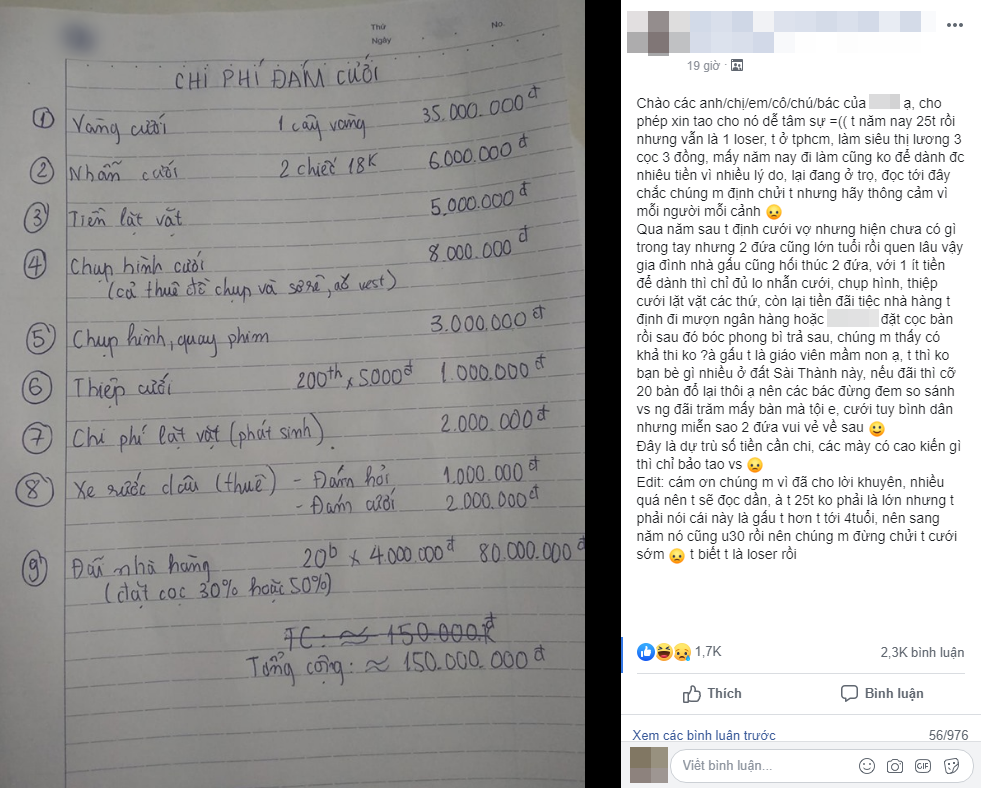 Thứ
No.
Ngày
CHI PHÍ ĐÁM CƯỚI
① Vàng cưới 1 cây vàng 35.000.000đ
② Nhẫn cưới 2 chiếc 18K 6.000.000đ
③ Tiền lặt vặt 5.000.000đ
④ Chụp hình cưới 8.000.000đ
(cả thuê đồ chụp và sơrê, áo vest)
⑤ Chụp hình, quay phim 3.000.000đ
⑥ Thiệp cưới 200th x 5000đ 1.000.000đ
⑦ Chi phí lặt vặt (phát sinh). 2.000.000đ
⑧ Xe rước dâu (thuê) - Đám hỏi 1.000.000đ
- Đám cưới 2.000.000đ
⑨ Đãi nhà hàng 20b x 4.000.000đ 80.000.000đ
(đặt cọc 30% hoặc 50%)
TC: ≈ 150.000K
Tổng cộng: ≈ 150.000.000đ
19 giờ ·
Chào các anh/chị/em/cô/chú/bác của ạ, cho
phép xin tao cho nó dễ tâm sự =(( t năm nay 25t rồi
nhưng vẫn là 1 loser, t ở tphcm, làm siêu thị lương 3
cọc 3 đồng, mấy năm nay đi làm cũng ko để dành đc
nhiêu tiền vì nhiều lý do, lại đang ở trọ, đọc tới đây
chắc chúng m định chửi t nhưng hãy thông cảm vì
mỗi người mỗi cảnh 😟
Qua năm sau t định cưới vợ nhưng hiện chưa có gì
trong tay nhưng 2 đứa cũng lớn tuổi rồi quen lâu vậy
gia đình nhà gấu cũng hối thúc 2 đứa, với 1 ít tiền
để dành thì chỉ đủ lo nhẫn cưới, chụp hình, thiệp
cưới lặt vặt các thứ, còn lại tiền đãi tiệc nhà hàng t
định đi mượn ngân hàng hoặc đặt cọc bàn
rồi sau đó bóc phong bì trả sau, chúng m thấy có
khả thi ko ?à gấu t là giáo viên mầm non ạ, t thì ko
bạn bè gì nhiều ở đất Sài Thành này, nếu đãi thì cỡ
20 bàn đổ lại thôi ạ nên các bác đừng đem so sánh
vs ng đãi trăm mấy bàn mà tội e, cưới tuy bình dân
nhưng miễn sao 2 đứa vui vẻ về sau 😀
Đây là dự trù số tiền cần chi, các mày có cao kiến gì
thì chỉ bảo tao vs 😟
Edit: cám ơn chúng m vì đã cho lời khuyên, nhiều
quá nên t sẽ đọc dần, à t 25t ko phải là lớn nhưng t
phải nói cái này là gấu t hơn t tới 4tuổi, nên sang
năm nó cũng u30 rồi nên chúng m đừng chửi t cưới
sớm 😟 t biết t là loser rồi
1,7K
2,3K bình luận
Thích
Bình luận
Xem các bình luận trước
56/976
Viết bình luận...
GIF